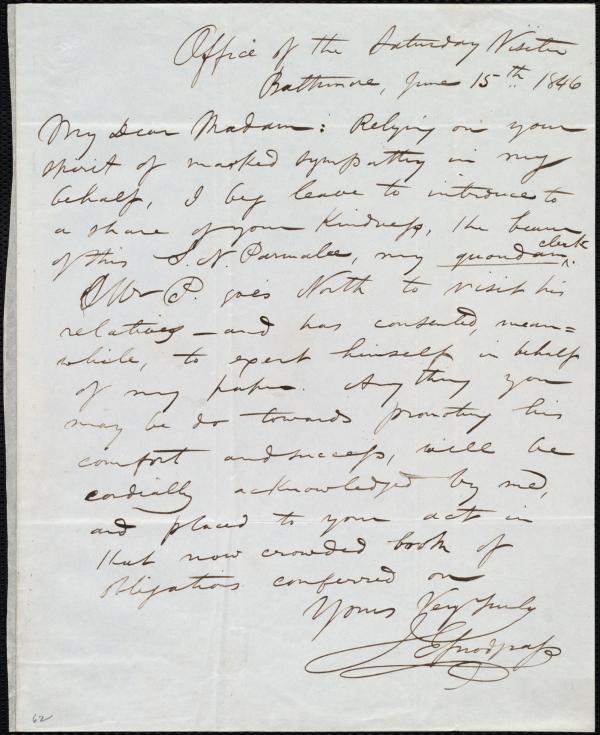 Office of the Saturday Visiter
Baltimore, June 15th 1846
My Dear Madam: Relying on your
spirit of marked sympathy in my
behalf, I beg leave to introduce to
a share of your kindness, the bearer
of this S. N. Parmalee, my quondam clerk.
Mr P. goes North to visit his
relatives – and has consented, mean=
while, to exert himself in behalf
of my paper. Any thing you
may be do towards promoting his
comfort and success, will be
cordially acknowledged by me,
and placed to your act in
that now crowded book of
obligations conferred on
Yours Very truly
J E Snodgrass
62